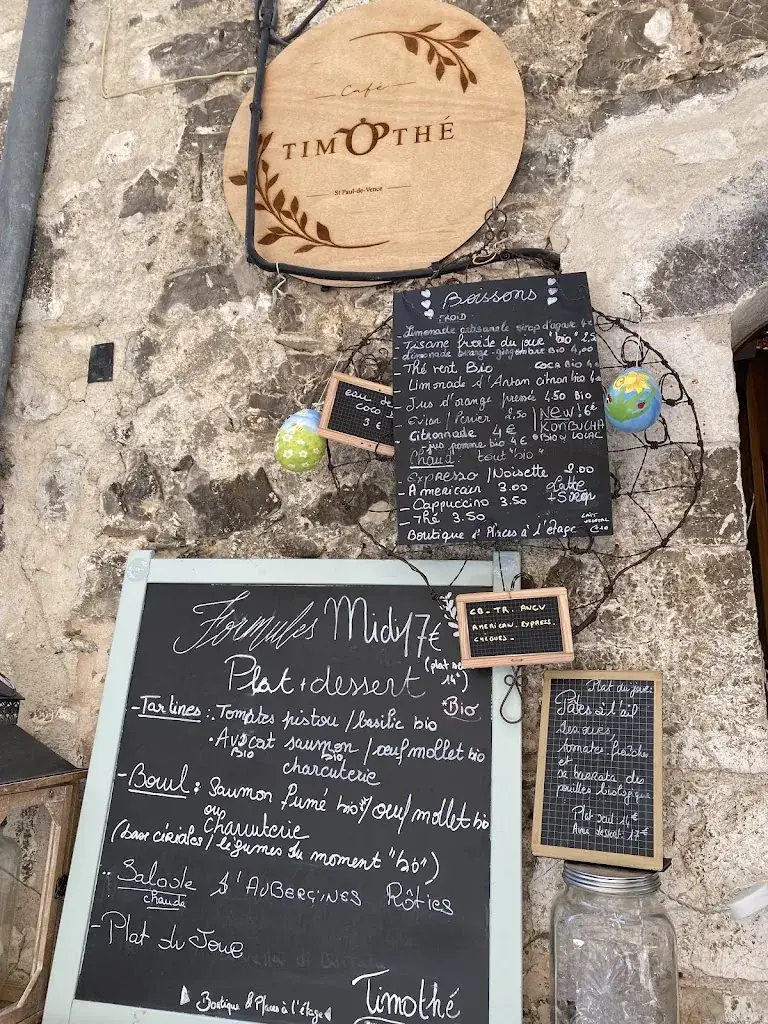 Café
TIMOTHÉ
St Paul-de-Vence
Boissons
FROID
Limonade artisanale sirop d'agave 4€
- Tisane froide du jour "bio" 2,5
Limonade orange-gingembre Bio 4,00
- Thé vert Bio COCA Bio 4€
Limonade d'Antan citron bio 4€
- Jus d'orange pressé 4,50 Bio
- Evian / Perrier 2,50
Citronnade 4€
- jus pomme bio 4€
New! 6€
KOMBUCHA
Bio & LOCAL
Chaud tout "bio"
Expresso / Noisette 2.00
- Americain 3.00
- Cappuccino 3.50
- Thé 3.50
Latte
+ Sirop
LAIT
VEGETAL
Boutique & Places à l'étage
eau de
coco
3 €
Formules Midi 17€
(plat
14€)
Plat + dessert
*Bio
- Tartines : Tomates pistou / basilic bio
• Avocat saumon / œuf mollet bio
Bio Bio
charcuterie
- Bowl : Saumon fumé bio / œuf mollet bio
ou
Charcuterie
(base céréales / légumes du moment "bio")
Salade D'AUBERGINES Rôties
chaude
- Plat du Jour
Boutique & Places à l'étage
Timothé
CB_TR_ANCV
AMERICAN EXPRESS.
CHEQUES_
Plat du jour:
Pâtes à l'ail
tomates fraîches
et
sa burrata des
pouilles biologique
Plat seul 14€
Avec dessert: 17€